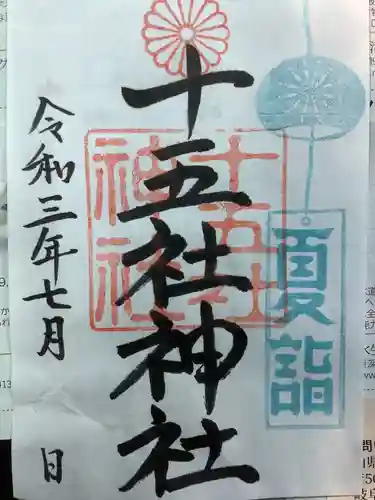 夏詣
十五社神社
十五社
神社
令和三年七月 日